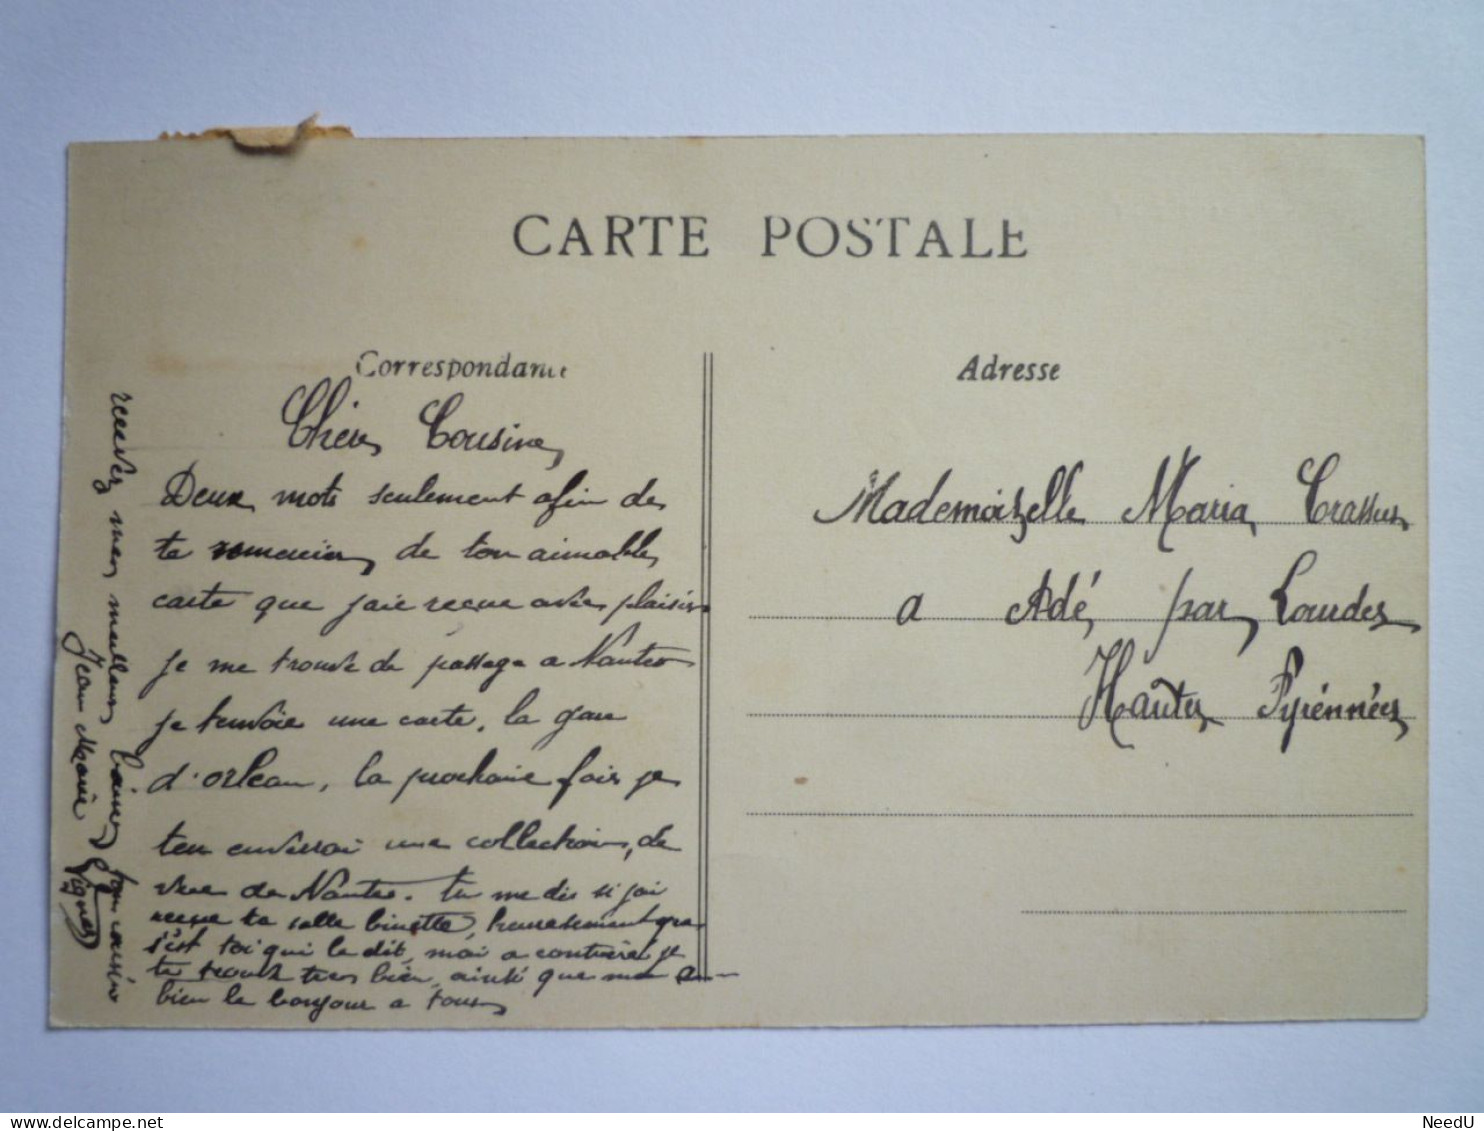 CARTE POSTALE
Correspondance
Chère Cousine,
Deux mots seulement afin de
te remercier de ton aimable
carte que jaie recue avec plaisir
je me trouve de passage a Nantes
je tenvoie une carte, la gare
d'orlean, la prochaine fois je
ten enverrai une collection, de
vue de Nantes. tu me dis si jai
recue ta salle binette, heureusement que
s'est toi qui le dit, moi a contraire je
te trouve tres bien, ainsi que
bien le bonjour a tous
recevez mes meilleurs baisers
Jean Marie
Vignes
Adresse
Mademoiselle Maria Crassus
a Adé, par Lourdes
Hautes Pyrénnées
NeedU